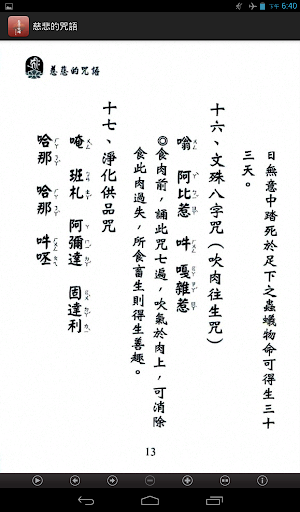 下午 6:40
慈悲的咒語
慈悲的咒語
日無意中踏死於足下之蟲蟻物命可得生三十
三天。
十六、文殊八字咒（吹肉往生咒）
嗡 阿比惹 吽 嘎雜惹
◎食肉前，誦此咒七遍，吹氣於肉上，可消除
食此肉過失，所食畜生則得生善趣。
十七、淨化供品咒
唵 班札 阿彌達 固達利
哈那 哈那 吽呸
13